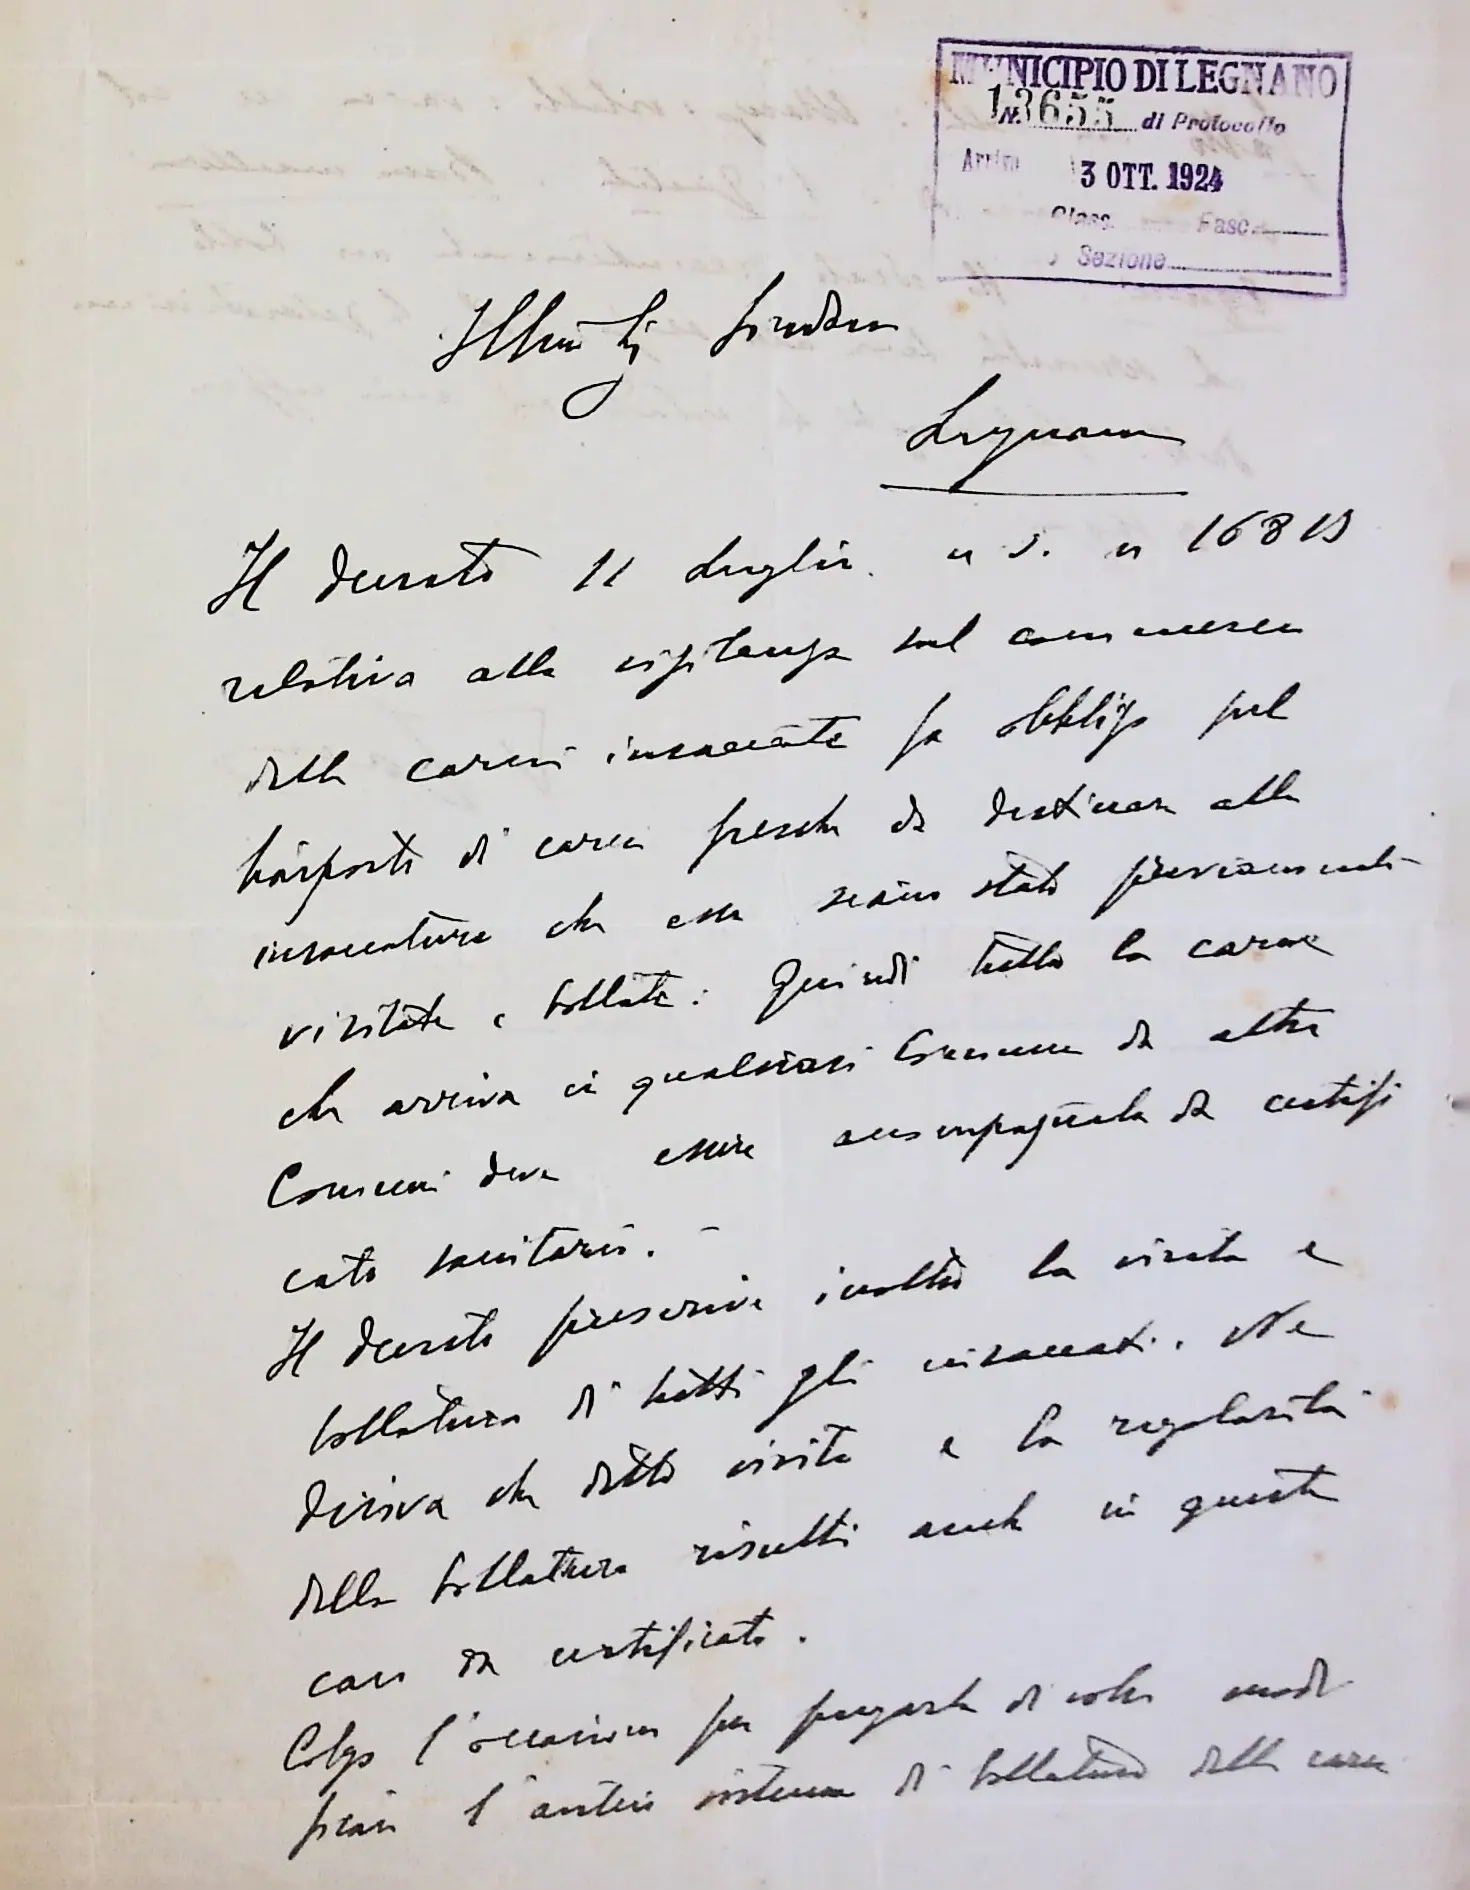 MUNICIPIO DI LEGNANO
N. 13655 di Protocollo
Arrivo 3 OTT. 1924
Class. Fasc.
Sezione
Sindaco
Legnano
Il decreto 11 Luglio u.s. n 16819
relativo alla vigilanza sul commercio
delle carni insaccate fa obbligo pel
trasporto di carni fresche da destinare alla
insaccatura che esse siano state previamente
visitate e bollate. Quindi tutta la carne
che arriva in qualsiasi Comune da altri
Comuni deve essere accompagnata da certifi
cato sanitario.
Il decreto prescrive inoltre la visita e
bollatura di tutti gli insaccati. Ne
deriva che detta visita e la regolarità
della bollatura risulti anche in questo
caso da certificato.
Colgo l'occasione per pregarla di voler modi
ficare l'antico sistema di bollatura delle carni